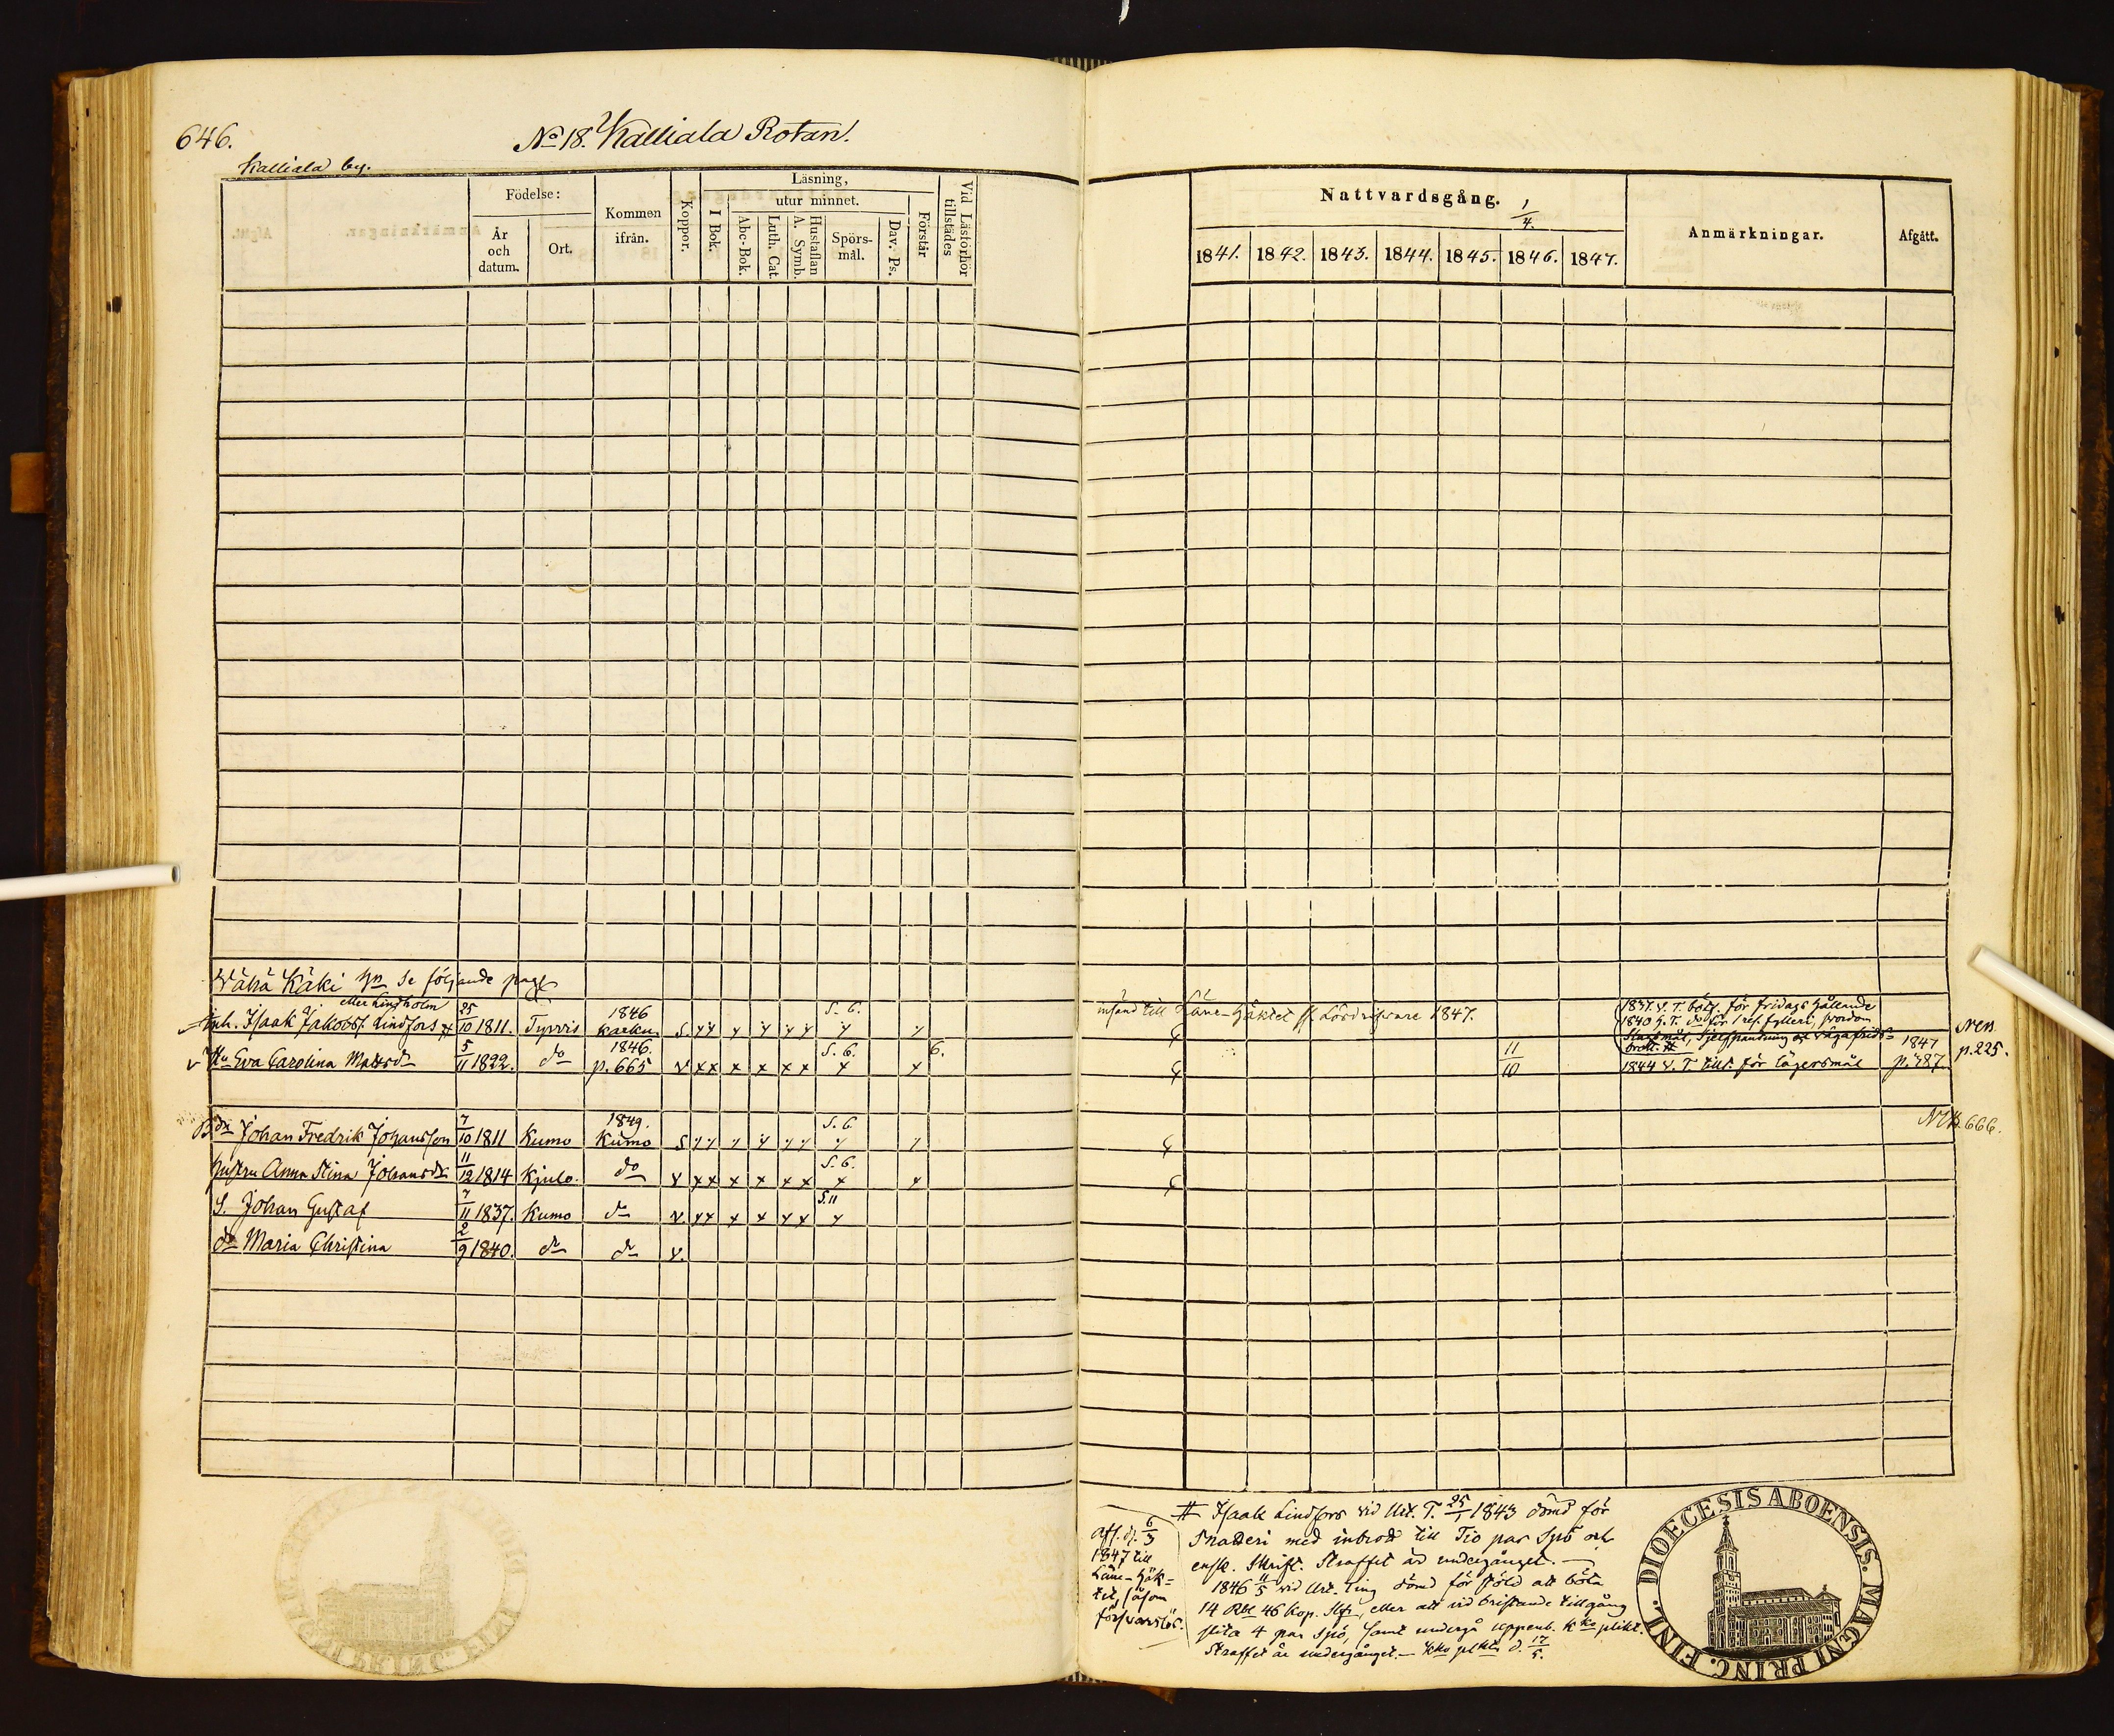 646.
No 18. Kalliala Rotan.
Kalliala by.
Födelse:
År och datum.
Ort.
Kommen ifrån.
Koppor.
Läsning,
I Bok.
utur minnet.
Abc-Bok.
Luth. Cat.
Hustaflan A. Symb.
Spörs-mål.
Dav. Ps.
Förstår
Vid Läsförhör tillstädes
Nattvardsgång. 1/4.
1841. 1842. 1843. 1844. 1845. 1846. 1847.
Anmärkningar.
Afgått.
Wähä Käki se följande page
eller Lindholm
Inh. Isaak Jakobss. Lindfors # 25/10 1811. Tyrvis 1846 Karku S. S. 6.
insänd till Läne-Häktet ss. Lösdrifvare 1847.
1837. V. T. böt. för fridags hållande
1840 H. T. do för 1 res. fylleri, svordom
Slagsmål, Sjelfpantning och vägafrids-
brott. #
Hu Eva Carolina Mattsdr 5/11 1822. do 1846. p. 665 v S. 6. 6. 11/10 1844 V. T. till. för Lägersmål 1847 p. 787. NB. p. 225.
Bdr Johan Fredrik Johansson 7/10 1811 Kumo 1849. Kumo S S. 6 NB. 666.
Hustru Anna Stina Johansdr 11/12 1814 Kjulo do v S. 6.
S. Johan Gustaf 7/11 1837. Kumo do v S. 11
dr Maria Christina 2/9 1840. do do v.
# Isaak Lindfors vid Urt. T. 25/1 1843 dömd för
Snatteri med inbrott till Tio par Spö och
ensk. Skrift. Straffet är undergånget. —
1846 11/5 vid Urt. Ting dömd för stöld att böta
14 Rbl 46 kop. Slfr, eller att vid bristande tillgång
slita 4 par spö, samt undergå uppenb. K:ko plikt.
Straffet är undergånget. — K:ko plikt. d. 17/5.
Aff. d. 6/3
1847 till
Läne-Häk-
tet, såsom
försvarslös.
DIOECESIS ABOENSIS. MAGNI PRINC. FINL.